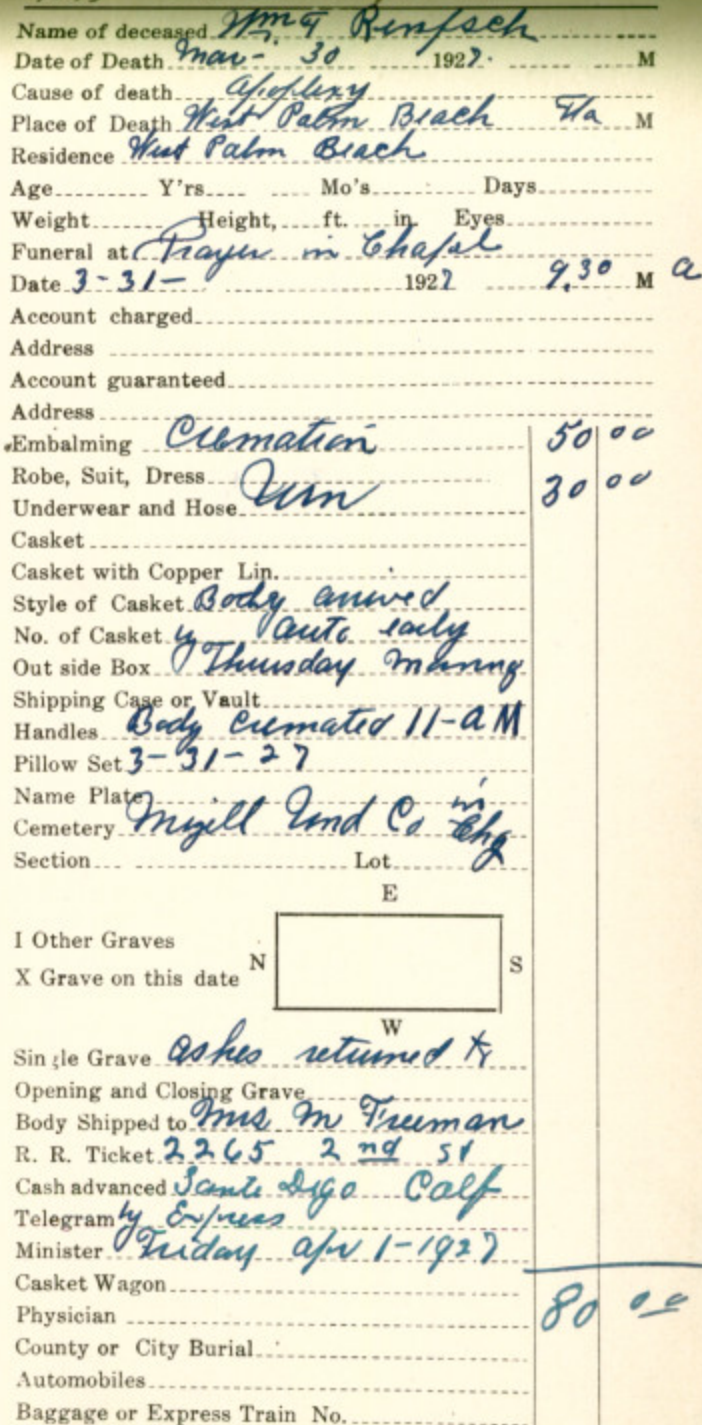 Name of deceased Wm G Rempsch
Date of Death Mar - 30 1927. M
Cause of death apoplexy
Place of Death West Palm Beach Fla M
Residence West Palm Beach
Age Y'rs Mo's Days
Weight Height, ft. in Eyes
Funeral at Prayer in Chapel
Date 3-31- 1927 9.30 M a
Account charged
Address
Account guaranteed
Address
Embalming Cremation 50 00
Robe, Suit, Dress Urn 30 00
Underwear and Hose
Casket
Casket with Copper Lin.
Style of Casket Body arrived
No. of Casket by auto early
Out side Box Thursday morning
Shipping Case or Vault
Handles Body cremated 11-a M
Pillow Set 3-31-27
Name Plate
Cemetery Mizell Und Co in Chg
Section Lot
E
I Other Graves
N S
X Grave on this date
W
Single Grave ashes returned to
Opening and Closing Grave
Body Shipped to Mrs M Freeman
R. R. Ticket 2265 2nd st
Cash advanced Sante Digo Calf
Telegram by Express
Minister Friday apr 1-1927
Casket Wagon
Physician 80 00
County or City Burial
Automobiles
Baggage or Express Train No.